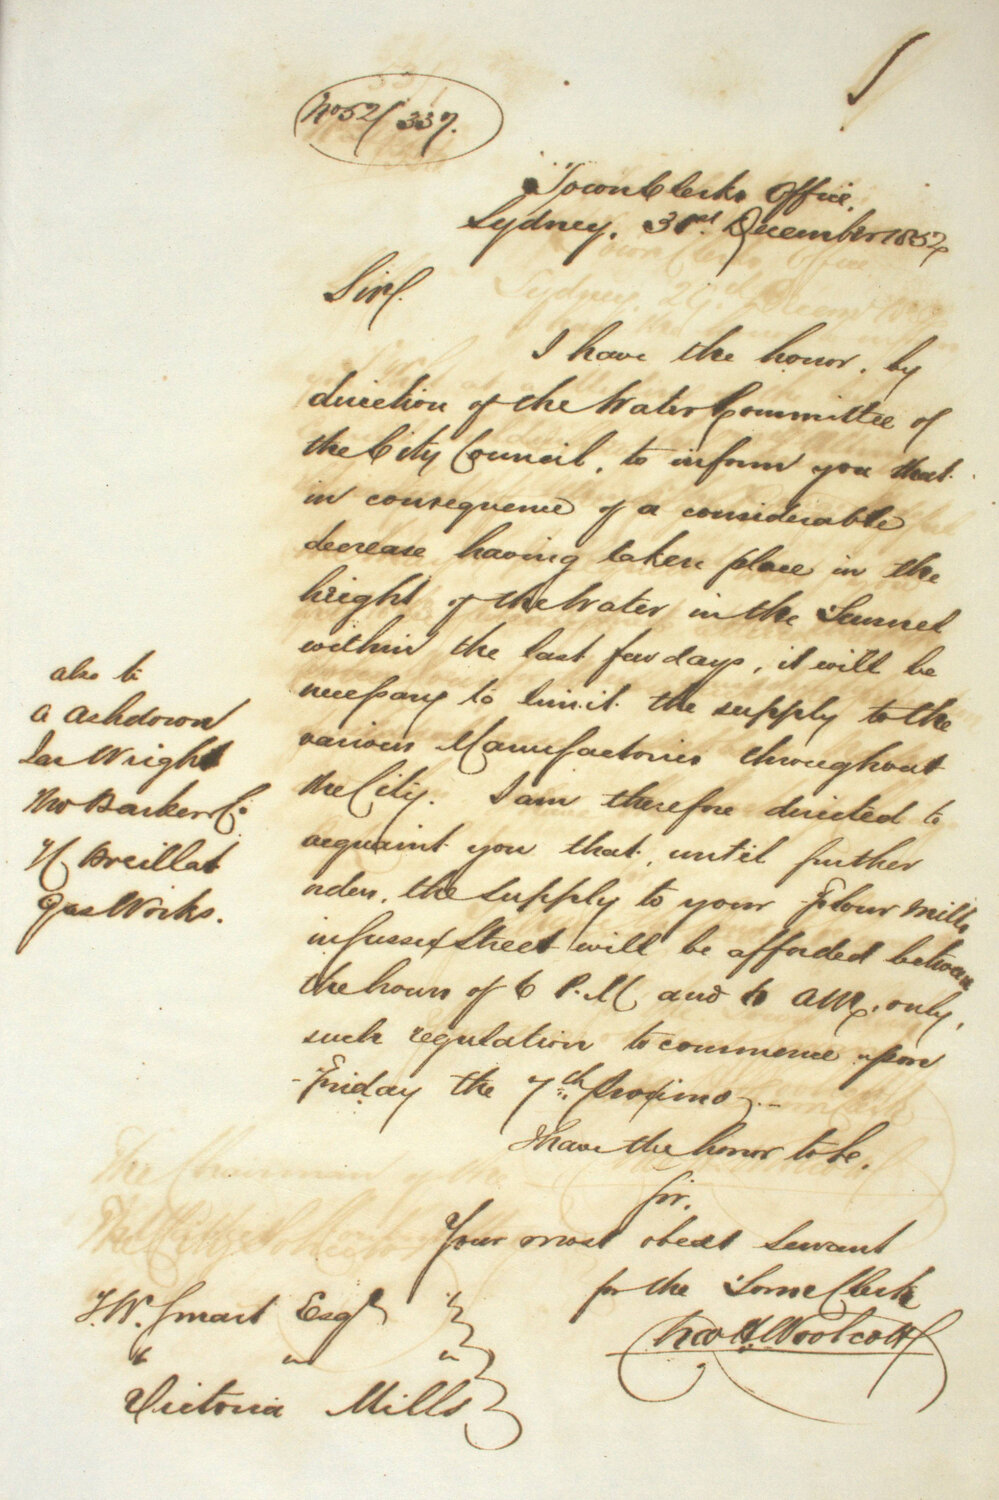 No 52/337.
Town Clerks Office,
Sydney, 31st December 1852
Sir/.
I have the honor, by
direction of the Water Committee of
the City Council, to inform you that
in consequence of a considerable
decrease having taken place in the
height of the Water in the Tunnel
within the last few days, it will be
necessary to limit the supply to the
various Manufactories throughout
the City. I am therefore directed to
acquaint you that, until further
orders, the supply to your Flour Mills,
in Sussex Street will be afforded between
the hours of 6 P.M. and 6 AM. only,
such regulation to commence upon
Friday the 7th Proximo.
I have the honor to be,
Sir,
Your most obedt Servant
for the Town Clerk
Thos H. Woolcott
also to
A Ashdown
Jas Wright
Thos Barker & Co
H Breillat
Gas Works.
T.W. Smart Esqr
" " "
Victoria Mills